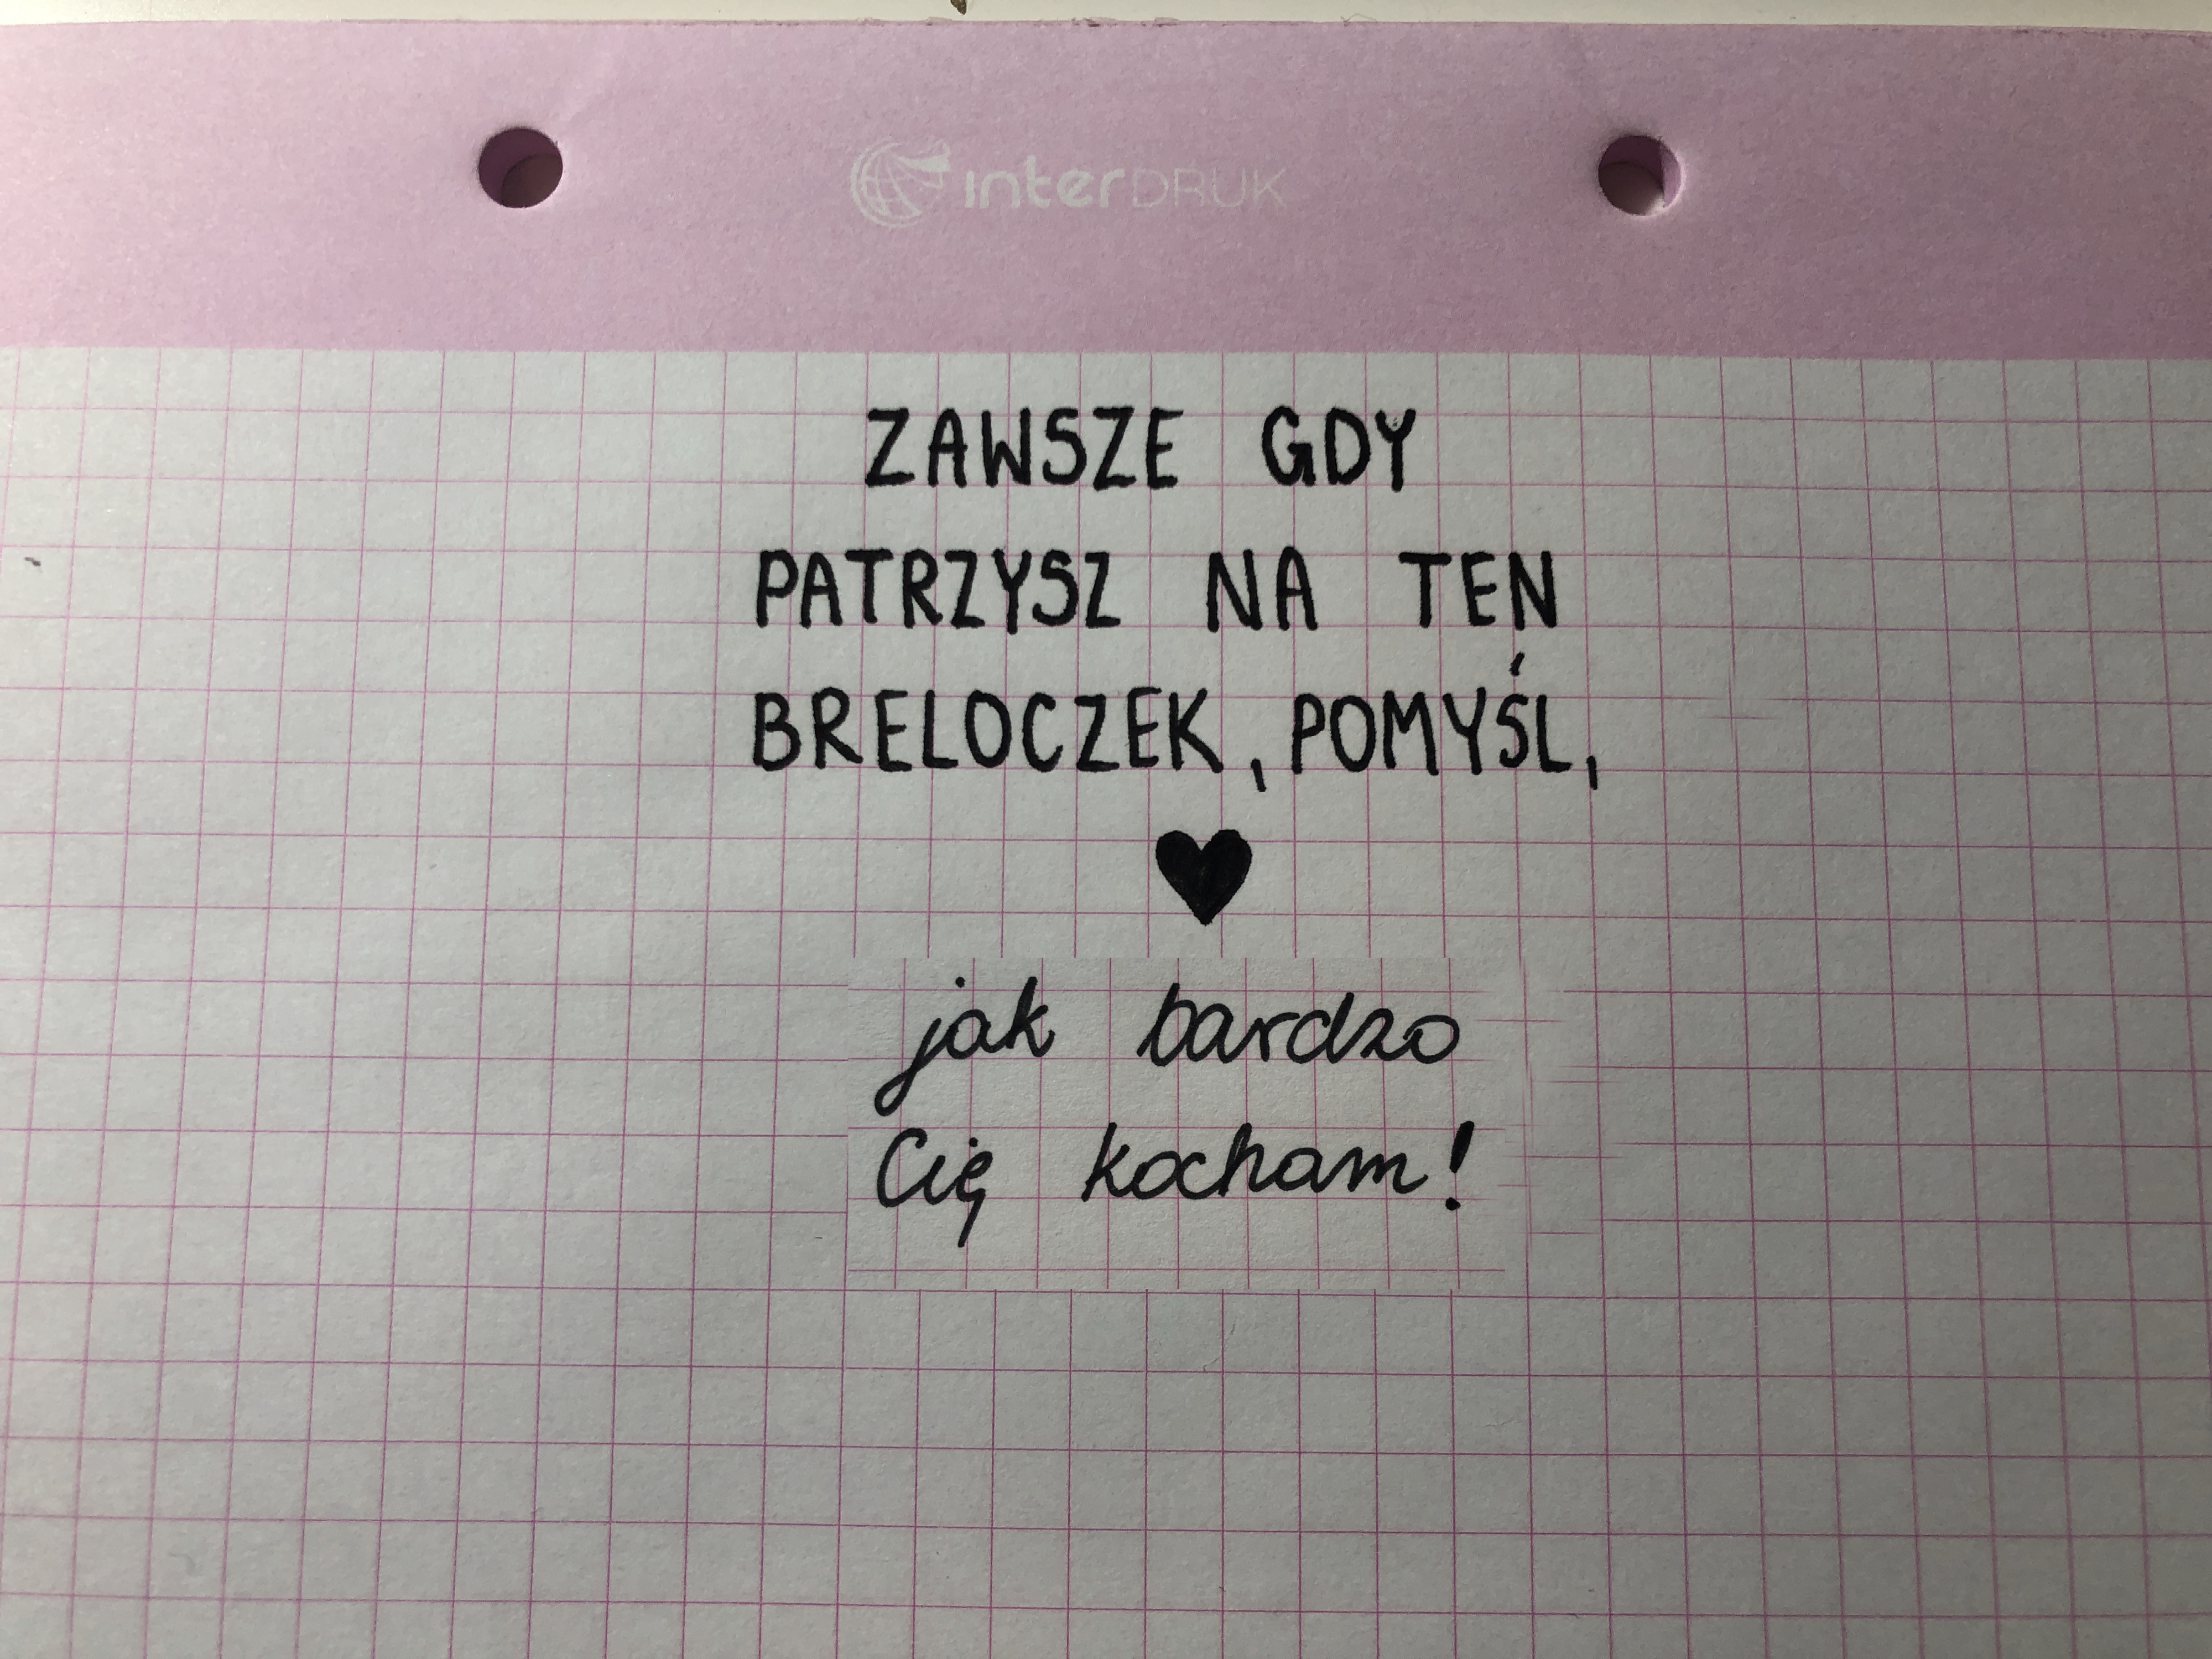 interDRUK
ZAWSZE GDY
PATRZYSZ NA TEN
BRELOCZEK, POMYŚL,
jak bardzo
Cię kocham!